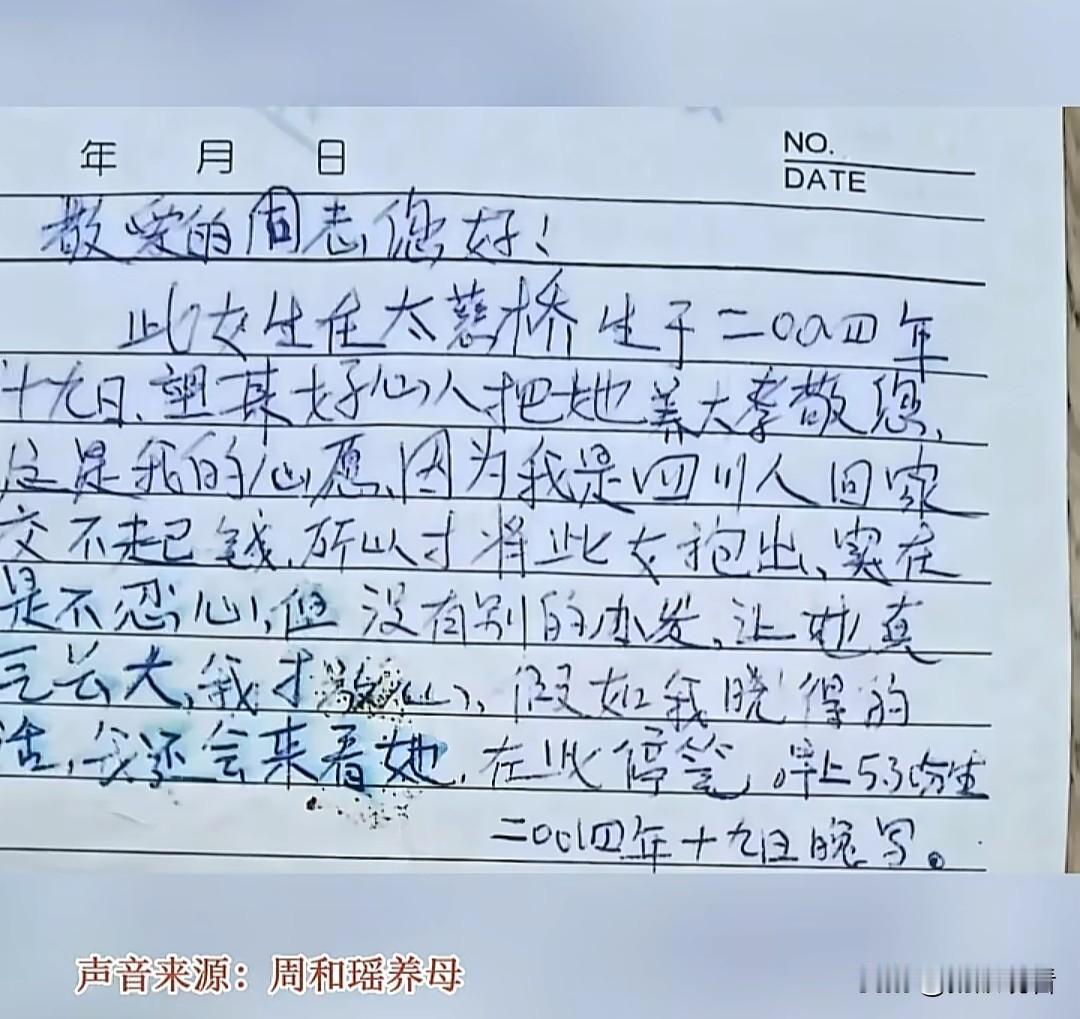 年 月 日
NO.
DATE
敬爱的同志,您好!
此女生在太慈桥生于二00四年
十九日、望某好心人把她养大孝敬您,
这是我的心愿,因为我是四川人回家
交不起钱,所以才将此女抱出、实在
是不忍心,但没有别的办发,让她真
长大,我才放心、假如我晓得的
话,我还会来看她,在此停笔,早上5.30分生
二00四年十九日晚写。
声音来源:周和瑶养母